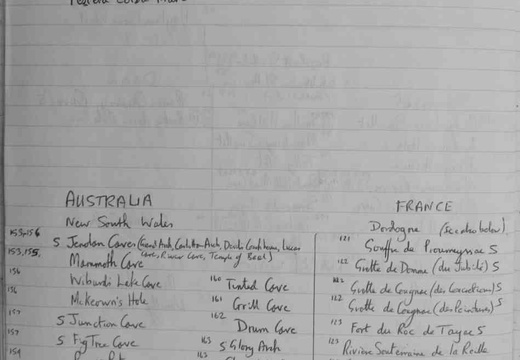 AUSTRALIA
New South Wales
153,156 S Jenolan Caves (Grand Arch, Carlotta Arch, Devils Coachhouse, Lucas
Cave, River Cave, Temple of Baal)
153,155 Mammoth Cave
156 Wiburds Lake Cave
156 McKeown's Hole
157 S Junction Cave
157 S Fig Tree Cave
159
160 Tinted Cave
161 Grill Cave
162 Drum Cave
163 S Glory Arch
163
FRANCE
Dordogne (See also below)
121 Gouffre de Proumeyssac S
122 Grotte de Domme (du Jubilé) S
122 Grotte de Cougnac (des Concretions) S
122 Grotte de Cougnac (des Peintures) S
123 Fort du Roc de Tayac S
123 Rivière Souterraine de la